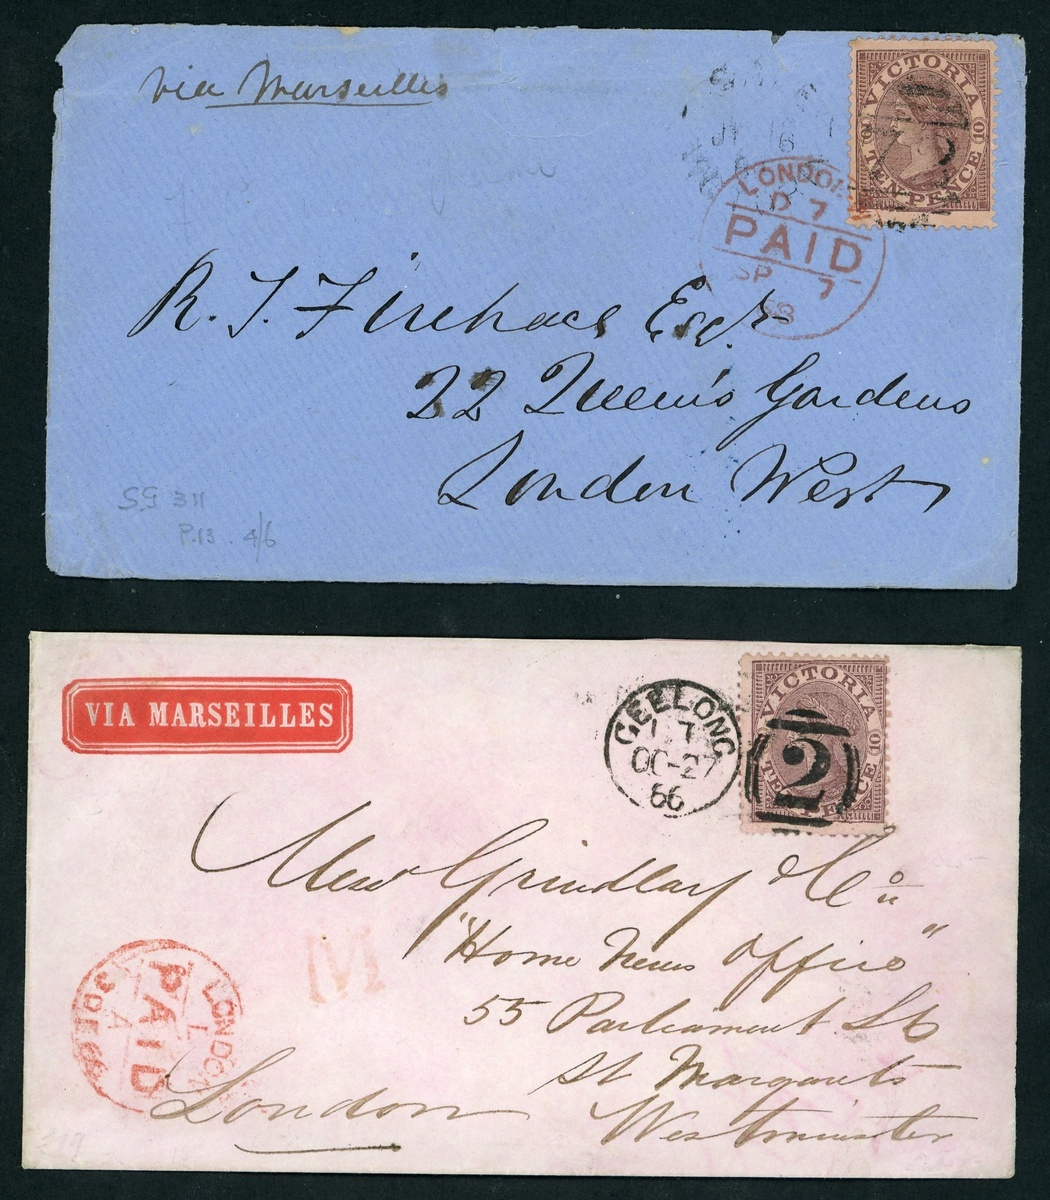 via Marseilles
VICTORIA
10 10
TEN PENCE
LONDON
D 7
PAID
SP 7
68
R. T. Firebrace Esqr
22 Queen's Gardens
London West
SG 311
P.13 . 4/6
VIA MARSEILLES
GEELONG
OC-27
66
VICTORIA
10
TEN PENCE
2
Grindlay & Co
"Home News Office"
55 Parliament St
St Margarets
Westminster
London
M
LONDON
PAID